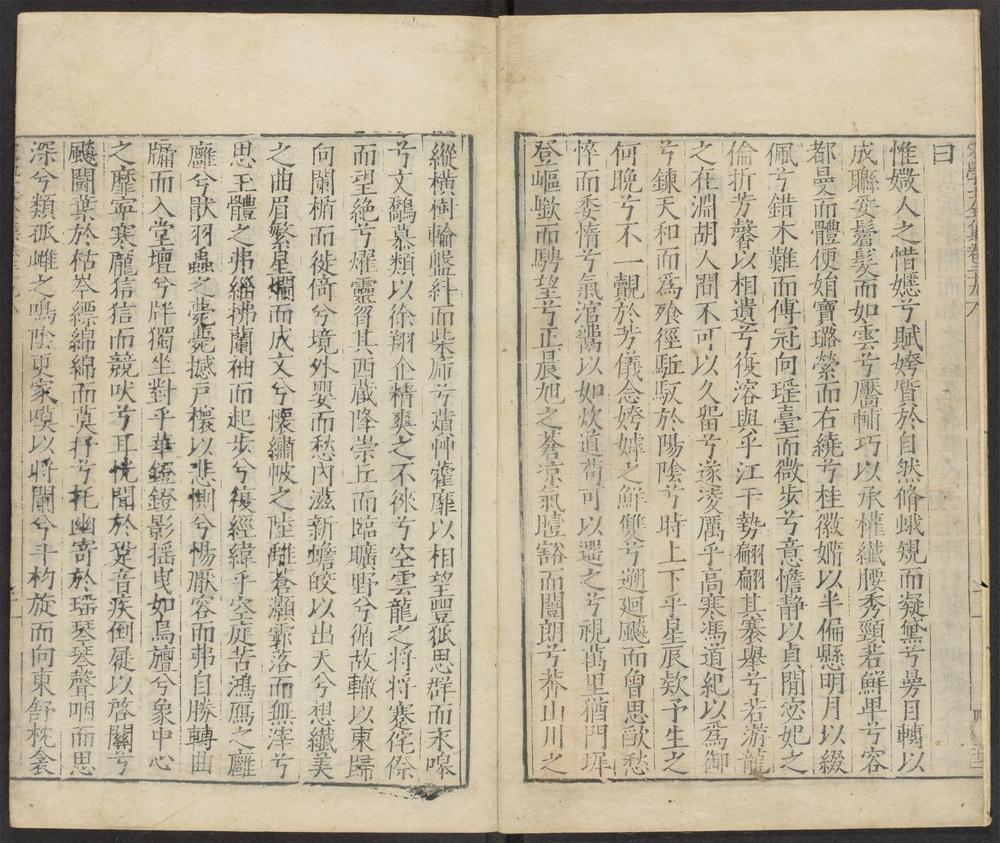 曰
惟媺人之惜嫕兮賦姱質於自然脩蛾規而凝黛兮曼目轉以
成聯妥鬒髮而如雲兮靨輔巧以承權纖腰秀頸若鮮卑兮容
都曼而體便娟寶璐縈而右繞兮桂徽婧以半偏懸明月以綴
佩兮錯木難而傅冠向瑶臺而微步兮意憺静以貞閒宓妃之
倫折芳馨以相遺兮復溶與乎江干勢翩翩其騫舉兮若游龍
之在淵胡人間不可以久留兮遂凌厲乎高寒馮道紀以為御
兮鍊天和而為飱徑駈馭於陽陰兮時上下乎星辰欵予生之
何晚兮不一覿於芳儀念姱嫭之鮮雙兮遡迴飈而曾思歐愁
悴而委惰兮氣涫鬻以如炊道茍可以遥之兮視萬里猶門墀
登嶇嶔而騁望兮正晨旭之蒼凉氣軆豁而闓朗兮莽山川之
縱横樹輪盤紏而柴虒兮薠艸雚靡以相望豐狐思群而來嘷
兮文鷮慕類以徐翔企精爽之不徠兮空雲龍之將將蹇侘傺
而望絶兮燿靈窅其西蔵降崇丘而臨曠野兮循故轍以東歸
向闌楯而徙倚兮境外嬰而愁内滋新蟾皎以出天兮想纖美
之曲眉繁星爛而成文兮懷繡帔之陸離蒼灝霏落而無滓兮
思玉體之弗緇拂蘭袖而起步兮復經緯乎空庭苦鴻鴈之廱
廱兮猒羽蟲之薨薨撼戸櫎以悲惻兮惕厭容而弗自勝轉曲
牗而入堂壇兮牉獨坐對乎華鐙鐙影摇曵如烏旜兮象中心
之靡寍寒厖信信而競吠兮耳恍聞於跫音疾倒屣以啓關兮
飈鬭葉於枯岑縹綿綿而莫抒兮托幽寄於瑶琴琴聲咽而思
深兮類孤雌之鳴陰更家嘆以將闌兮斗杓旋而向東舒枕衾